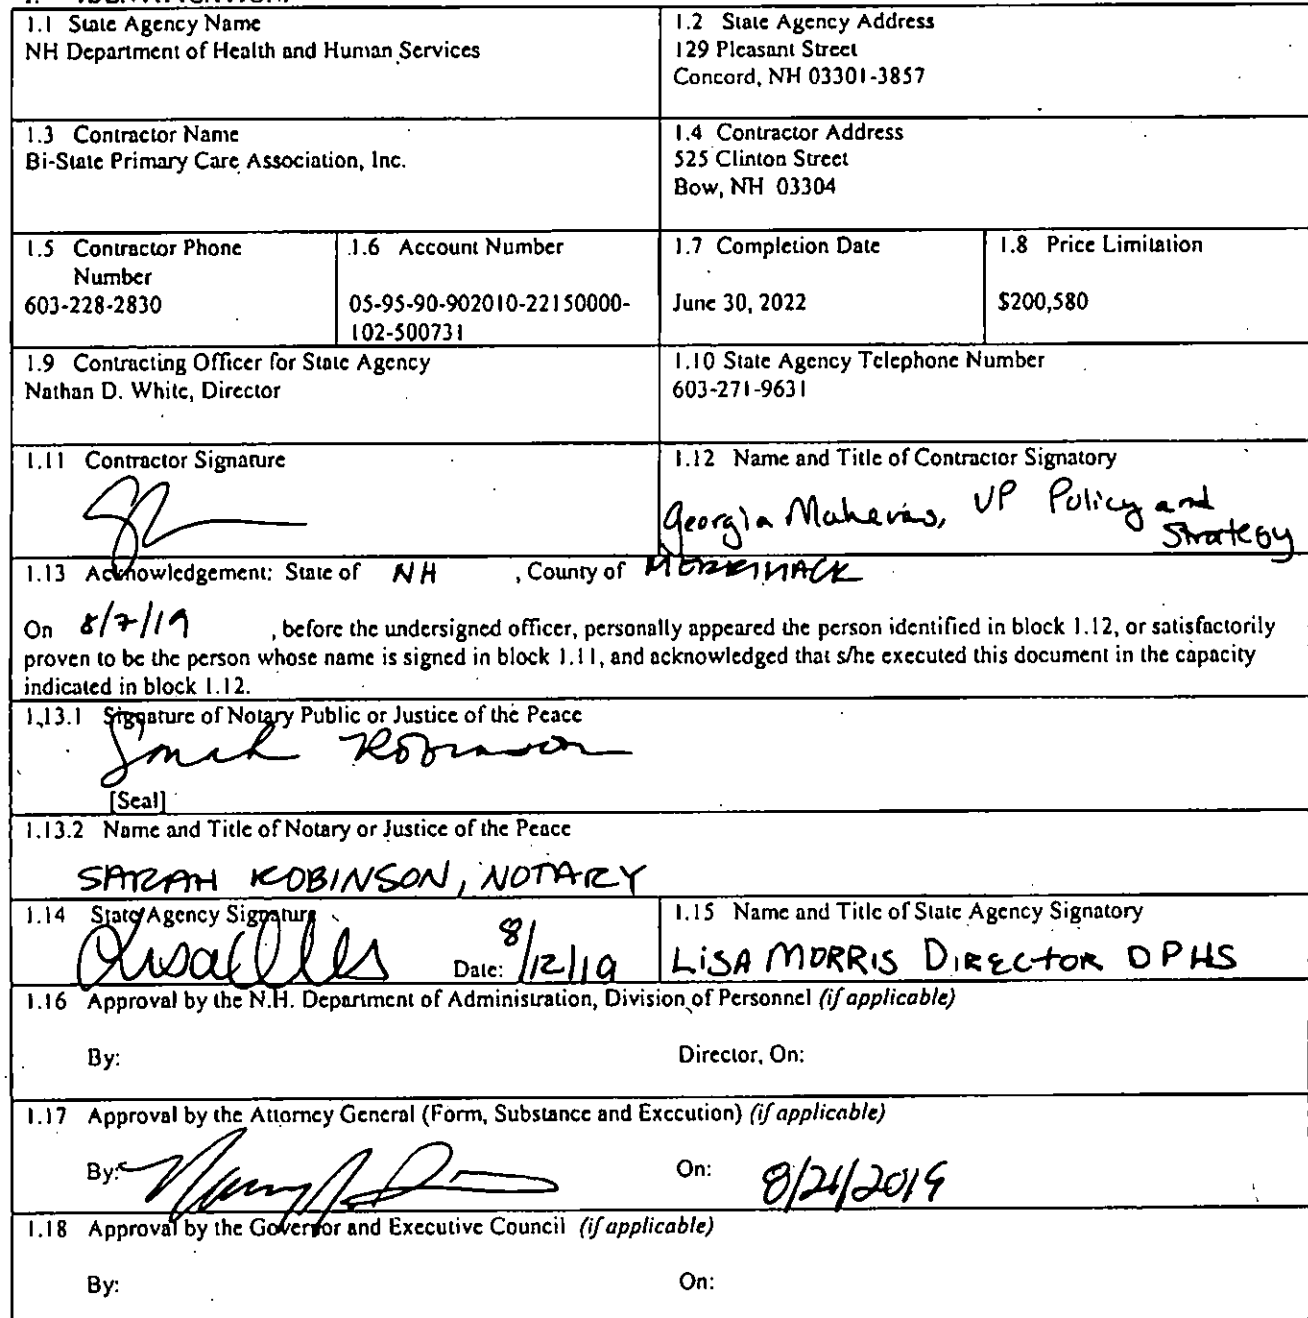 1.1 State Agency Name
NH Department of Health and Human Services
1.2 State Agency Address
129 Pleasant Street
Concord, NH 03301-3857
1.3 Contractor Name
Bi-State Primary Care Association, Inc.
1.4 Contractor Address
525 Clinton Street
Bow, NH 03304
1.5 Contractor Phone
Number
603-228-2830
1.6 Account Number
05-95-90-902010-22150000-
102-500731
1.7 Completion Date
June 30, 2022
1.8 Price Limitation
$200,580
1.9 Contracting Officer for State Agency
Nathan D. White, Director
1.10 State Agency Telephone Number
603-271-9631
1.11 Contractor Signature
1.12 Name and Title of Contractor Signatory
Georgia Maheras, VP Policy and
Strategy
1.13 Acknowledgement: State of NH , County of MERRIMACK
On 8/7/19 , before the undersigned officer, personally appeared the person identified in block 1.12, or satisfactorily
proven to be the person whose name is signed in block 1.11, and acknowledged that s/he executed this document in the capacity
indicated in block 1.12.
1.13.1 Signature of Notary Public or Justice of the Peace
Sarah Robinson
[Seal]
1.13.2 Name and Title of Notary or Justice of the Peace
SARAH ROBINSON, NOTARY
1.14 State Agency Signature
Date: 8/12/19
1.15 Name and Title of State Agency Signatory
LISA MORRIS DIRECTOR DPHS
1.16 Approval by the N.H. Department of Administration, Division of Personnel (if applicable)
By:
Director, On:
1.17 Approval by the Attorney General (Form, Substance and Execution) (if applicable)
By:
On: 8/21/2019
1.18 Approval by the Governor and Executive Council (if applicable)
By:
On: